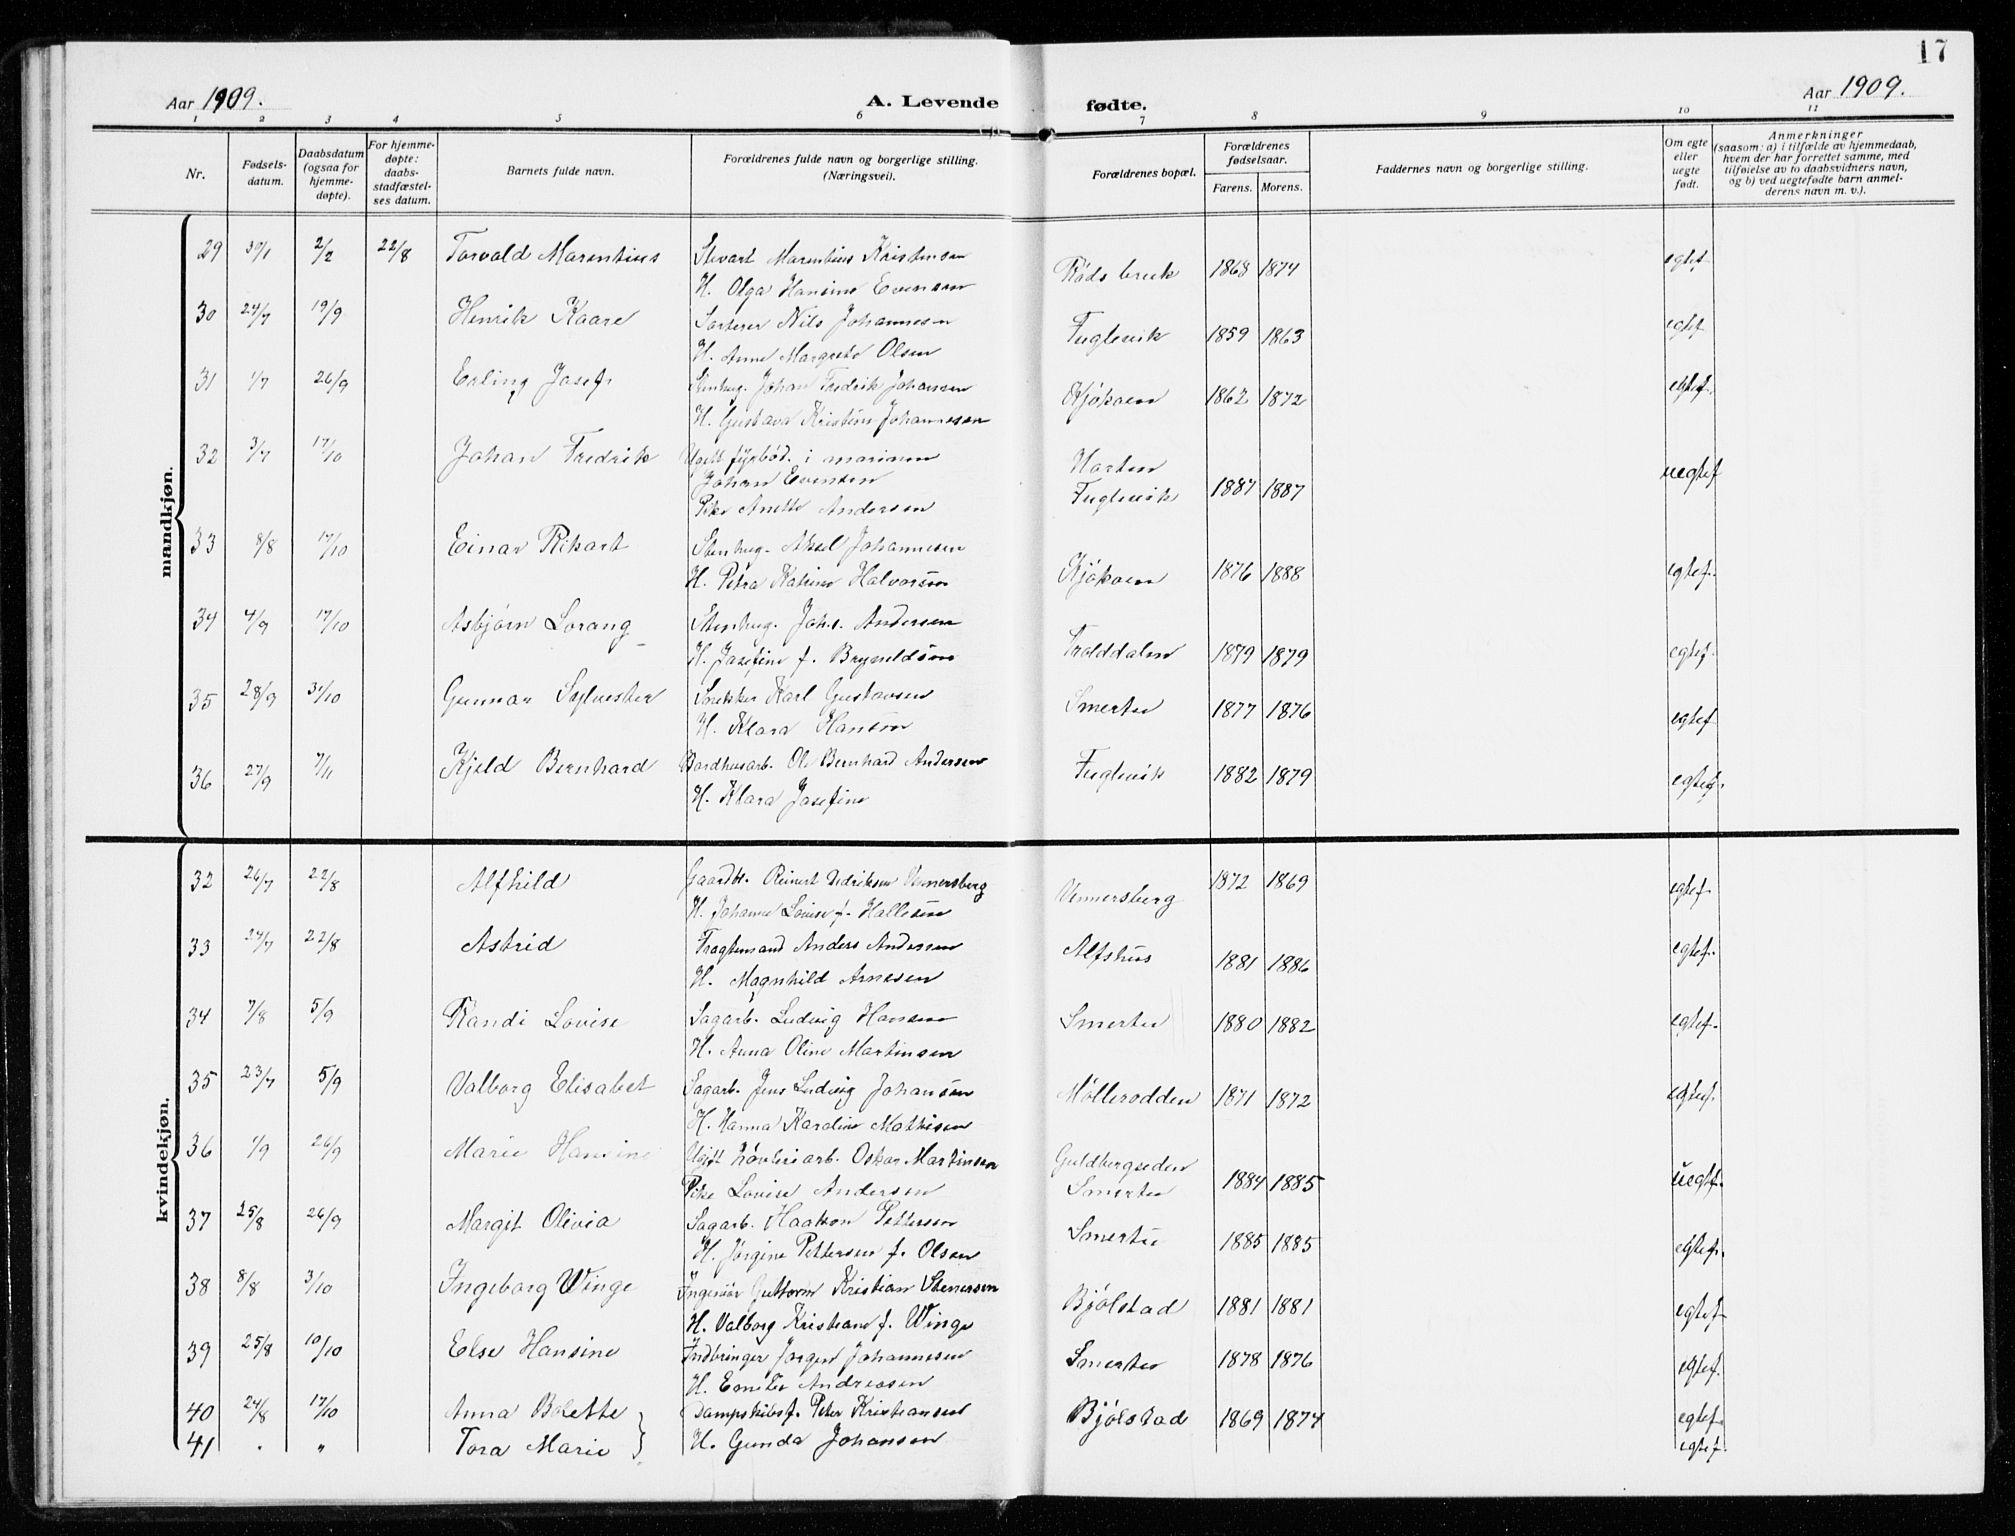 17
Aar 1909.
A. Levende fødte.
Aar 1909.
1 2 3 4 5 6 7 8 9 10 11
Nr.
Fødsels-
datum.
Daabsdatum
(ogsaa for
hjemme-
døpte).
For hjemme-
døpte:
daabs-
stadfæstel-
ses datum.
Barnets fulde navn.
Forældrenes fulde navn og borgerlige stilling.
(Næringsvei).
Forældrenes bopæl.
Forældrenes
fødselsaar.
Farens. Morens.
Faddernes navn og borgerlige stilling.
Om egte
eller
uegte
født.
Anmerkninger
(saasom: a) i tilfælde av hjemmedaab,
hvem der har forrettet samme, med
tilføielse av to daabsvidners navn,
og b) ved uegtefødte barn anmel-
derens navn m. v.).
mandkjøn.
29 30/1 2/2 22/8 Torvald Marentius Stuart Marentius Kristensen Røds bruk 1868 1874 egtef
H. Olga Hansine Evensen
30 24/7 19/9 Henrik Kaare Sorterer Nils Johannesen Fuglevik 1859 1863 egtef
H. Anne Margrete Olsen
31 1/7 26/9 Erling Josef Stenhug. Johan Fredrik Johansen Kjøkøen 1862 1872 egtef.
H. Gustava Kristine Johannesen
32 3/7 17/10 Johan Fredrik Ugift fyrbød. i marinen Horten uegtef
Johan Evensen Fuglevik 1887 1887
Pike Anette Andersen
33 8/8 17/10 Einar Rikart Stenhug. Aksel Johannesen Kjøkøen 1876 1888 egtef.
H. Petra Katrine Halvorsen
34 4/9 17/10 Asbjørn Lorang Stenhug. Johs. Andersen Trolddalen 1879 1879 egtef.
H. Josefine f. Bryneldsen
35 28/9 31/10 Gunnar Sylvester Snekker Karl Gustavsen Smertu 1877 1876 egtef
H. Klara Hansen
36 27/9 7/11 Kjeld Bernhard Bordhusarb. Ole Bernhard Andersen Fuglevik 1882 1879 egtef.
H. Klara Josefine
kvindekjøn.
32 26/7 22/8 Alfhild Gaardbr. Reinert Didriksen Vennersberg Vennersberg 1872 1869 egtef.
H. Johanne Louise f. Hallesen
33 24/7 22/8 Astrid Fragtemand Anders Andersen Alfshus 1881 1886 egtef.
H. Magnhild Arnesen
34 7/8 5/9 Randi Lovise Sagarb. Ludvig Hansen Smertu 1880 1882 egtef.
H. Anna Oline Martinsen
35 23/7 5/9 Valborg Elisabet Sagarb. Jens Ludvig Johansen Møllerodden 1871 1872 egtef.
H. Hanna Karoline Mathisen
36 1/9 26/9 Marie Hansine Ugift høvleriarb. Oskar Martinsen Guldbergseden 1884 1885 uegtef.
Pike Lovise Andersen Smertu
37 25/8 26/9 Margit Olivia Sagarb. Haakon Pettersen Smertu 1885 1885 egtef.
H. Jørgine Pettersen f. Olsen
38 8/8 3/10 Ingeborg Winge Ingeniør Guttorm Kristian Stenersen Bjølstad 1881 1881 egtef.
H. Valborg Kristiane f. Winge
39 25/8 10/10 Else Hansine Indbringer Jørgen Johannesen Smertu 1878 1876 egtef.
H. Emilie Andreasen
40 24/8 17/10 Anna Bolette Dampskibsf. Peter Kristiansen Bjølstad 1869 1874 egtef.
41 " " Tora Marie H. Gunda Johansen egtef.